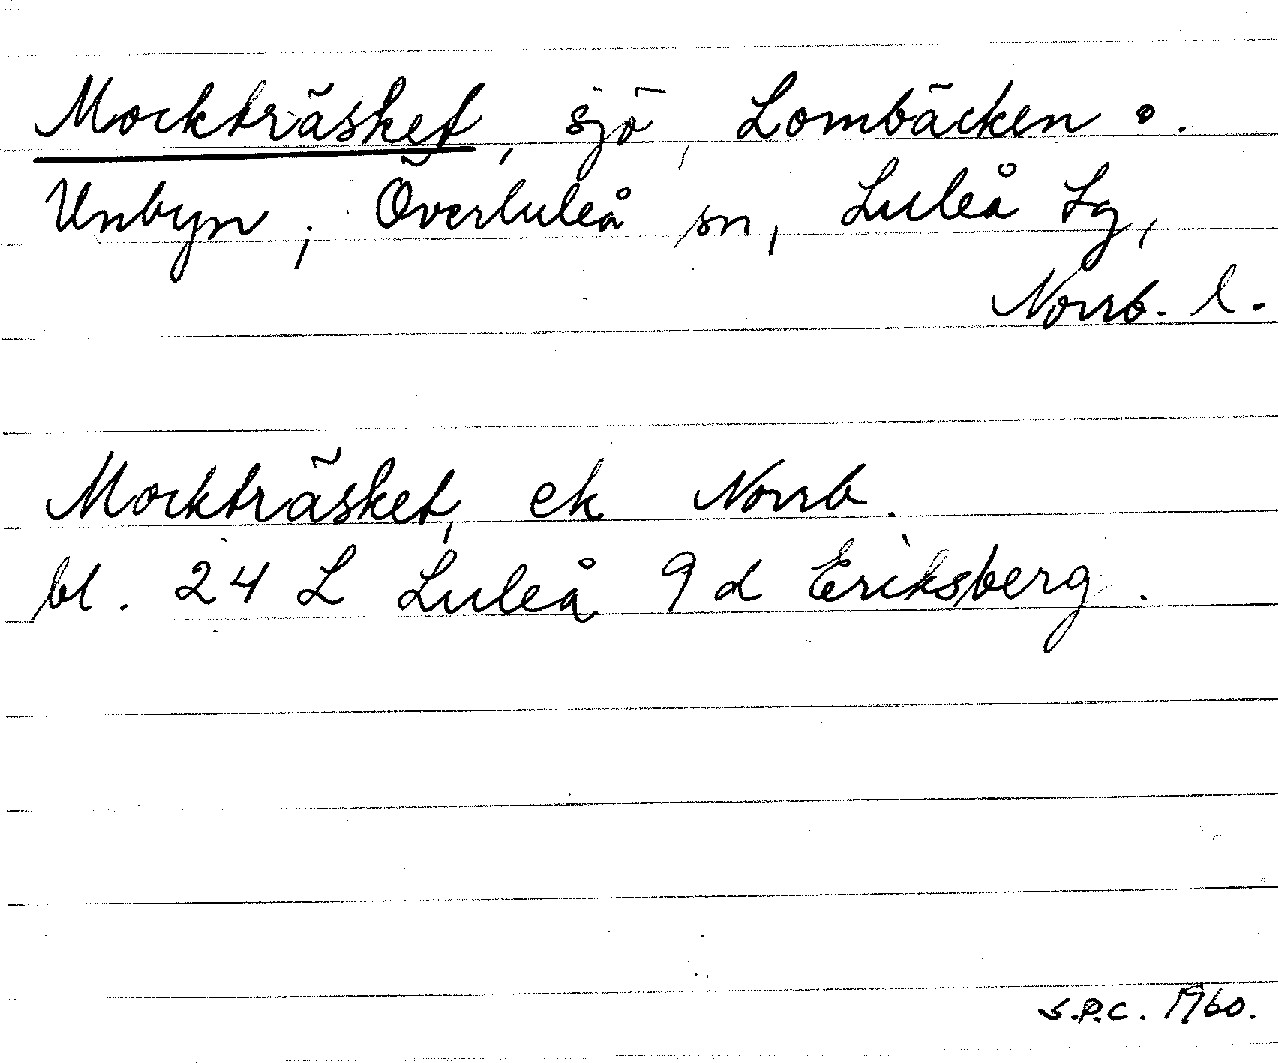 Mockträsket, sjö, Lombäcken o.
Unbyn, Överluleå sn, Luleå Lg,
Norrb. l.
Mockträsket, ek Norrb.
bl. 24 L Luleå 9 d Eriksberg.
S.P.C. 1960.